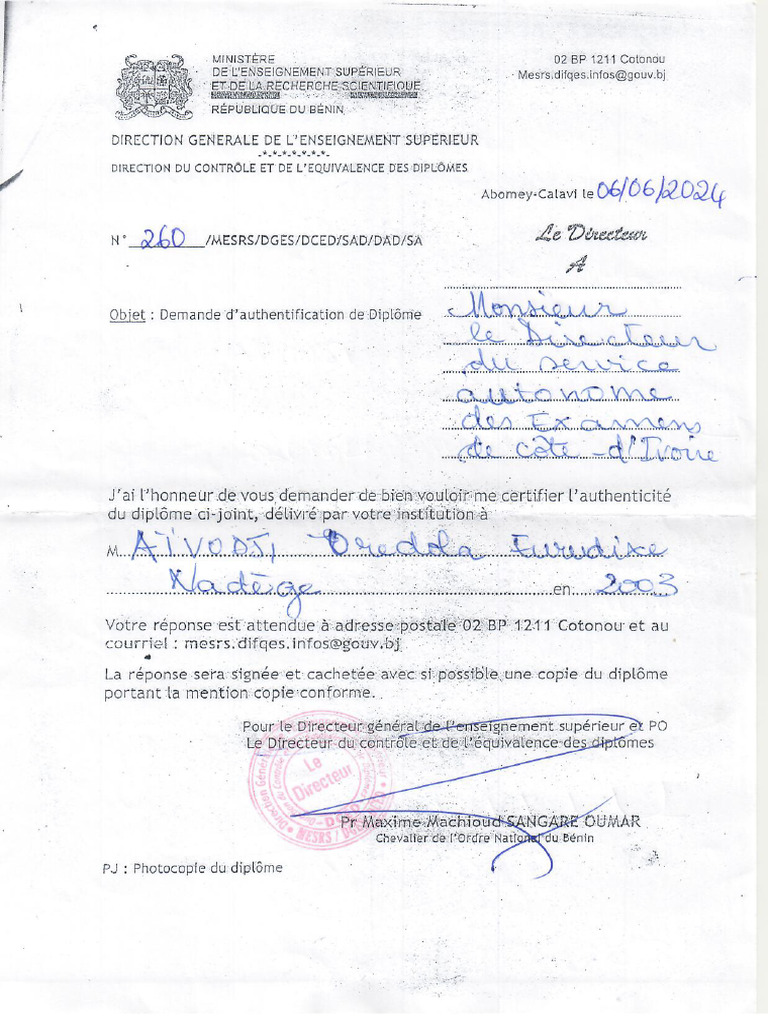 MINISTÈRE
DE L'ENSEIGNEMENT SUPÉRIEUR
ET DE LA RECHERCHE SCIENTIFIQUE
RÉPUBLIQUE DU BÉNIN
02 BP 1211 Cotonou
Mesrs.difqes.infos@gouv.bj
DIRECTION GENERALE DE L'ENSEIGNEMENT SUPERIEUR
-*-*-*-*-*-*-
DIRECTION DU CONTRÔLE ET DE L'EQUIVALENCE DES DIPLÔMES
Abomey-Calavi le 06/06/2024
N° 260 /MESRS/DGES/DCED/SAD/DAD/SA
Le Directeur
A
Objet : Demande d'authentification de Diplôme
Monsieur
le Directeur
du service
autonome
des Examens
de côte-d'Ivoire
J'ai l'honneur de vous demander de bien vouloir me certifier l'authenticité
du diplôme ci-joint, délivré par votre institution à
M AÏVODJI, Oredola Eurudixe
Nadège en 2003
Votre réponse est attendue à adresse postale 02 BP 1211 Cotonou et au
courriel : mesrs.difqes.infos@gouv.bj
La réponse sera signée et cachetée avec si possible une copie du diplôme
portant la mention copie conforme.
Pour le Directeur général de l'enseignement supérieur et PO
Le Directeur du contrôle et de l'équivalence des diplômes
Le
Directeur
Pr Maxime Machioud SANGARE OUMAR
Chevalier de l'Ordre National du Bénin
PJ : Photocopie du diplôme